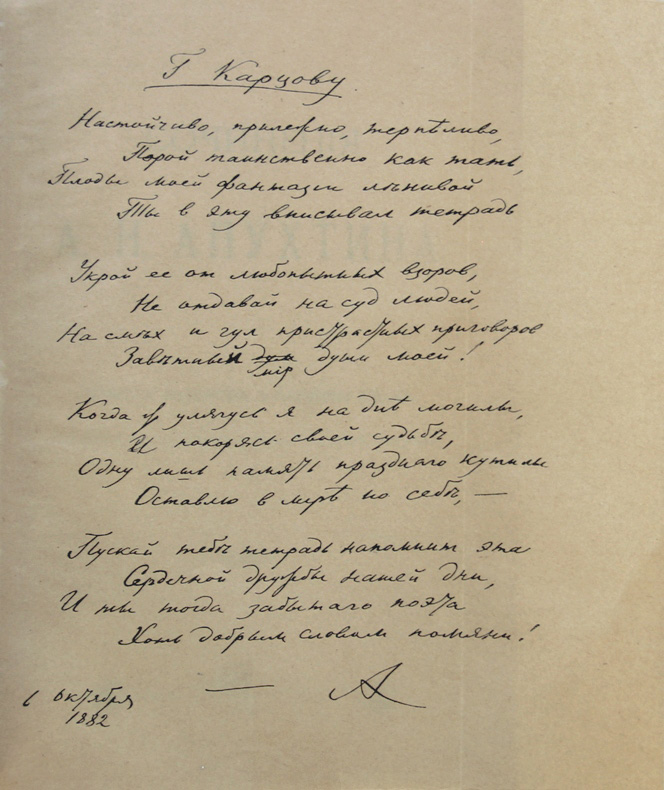 Г Карцову.
Настойчиво, прилежно, терпѣливо,
Порой таинственно как тать,
Плоды моей фантазии лѣнивой
Ты в эту вписывал тетрадь
Укрой ее от любопытных взоров,
Не отдавай на суд людей,
На смѣх и гул пристрастных приговоров
Завѣтный души моей!
мiр
Когда ж улягусь я на днѣ могилы,
И покорясь своей судьбѣ,
Одну лишь память празднаго кутилы
Оставлю в мирѣ по себѣ, —
Пускай тебѣ тетрадь напомнит эта
Сердечной дружбы нашей дни,
И ты тогда забытаго поэта
Хоть добрым словом помяни!
— А
6 октября
1882